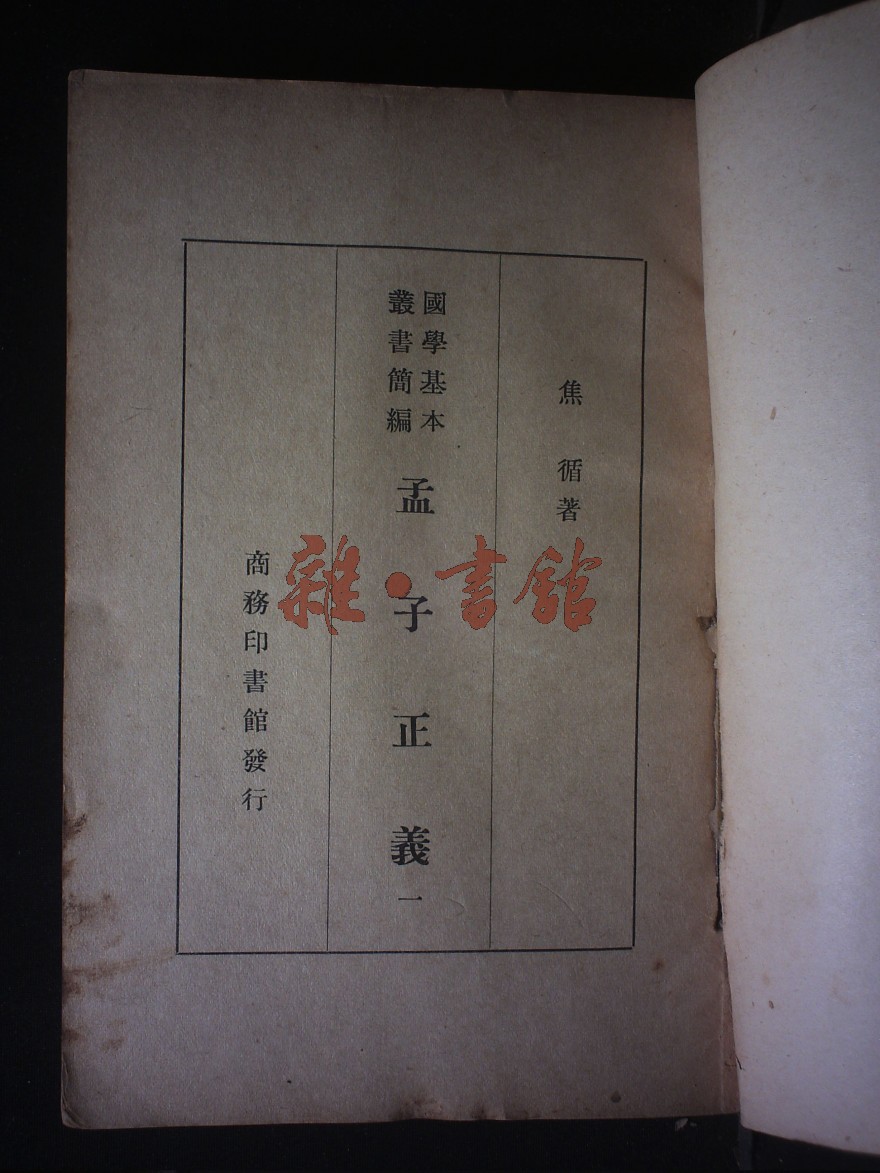 焦循著
國學基本
叢書簡編
孟子正義一
商務印書館發行
雜·書館